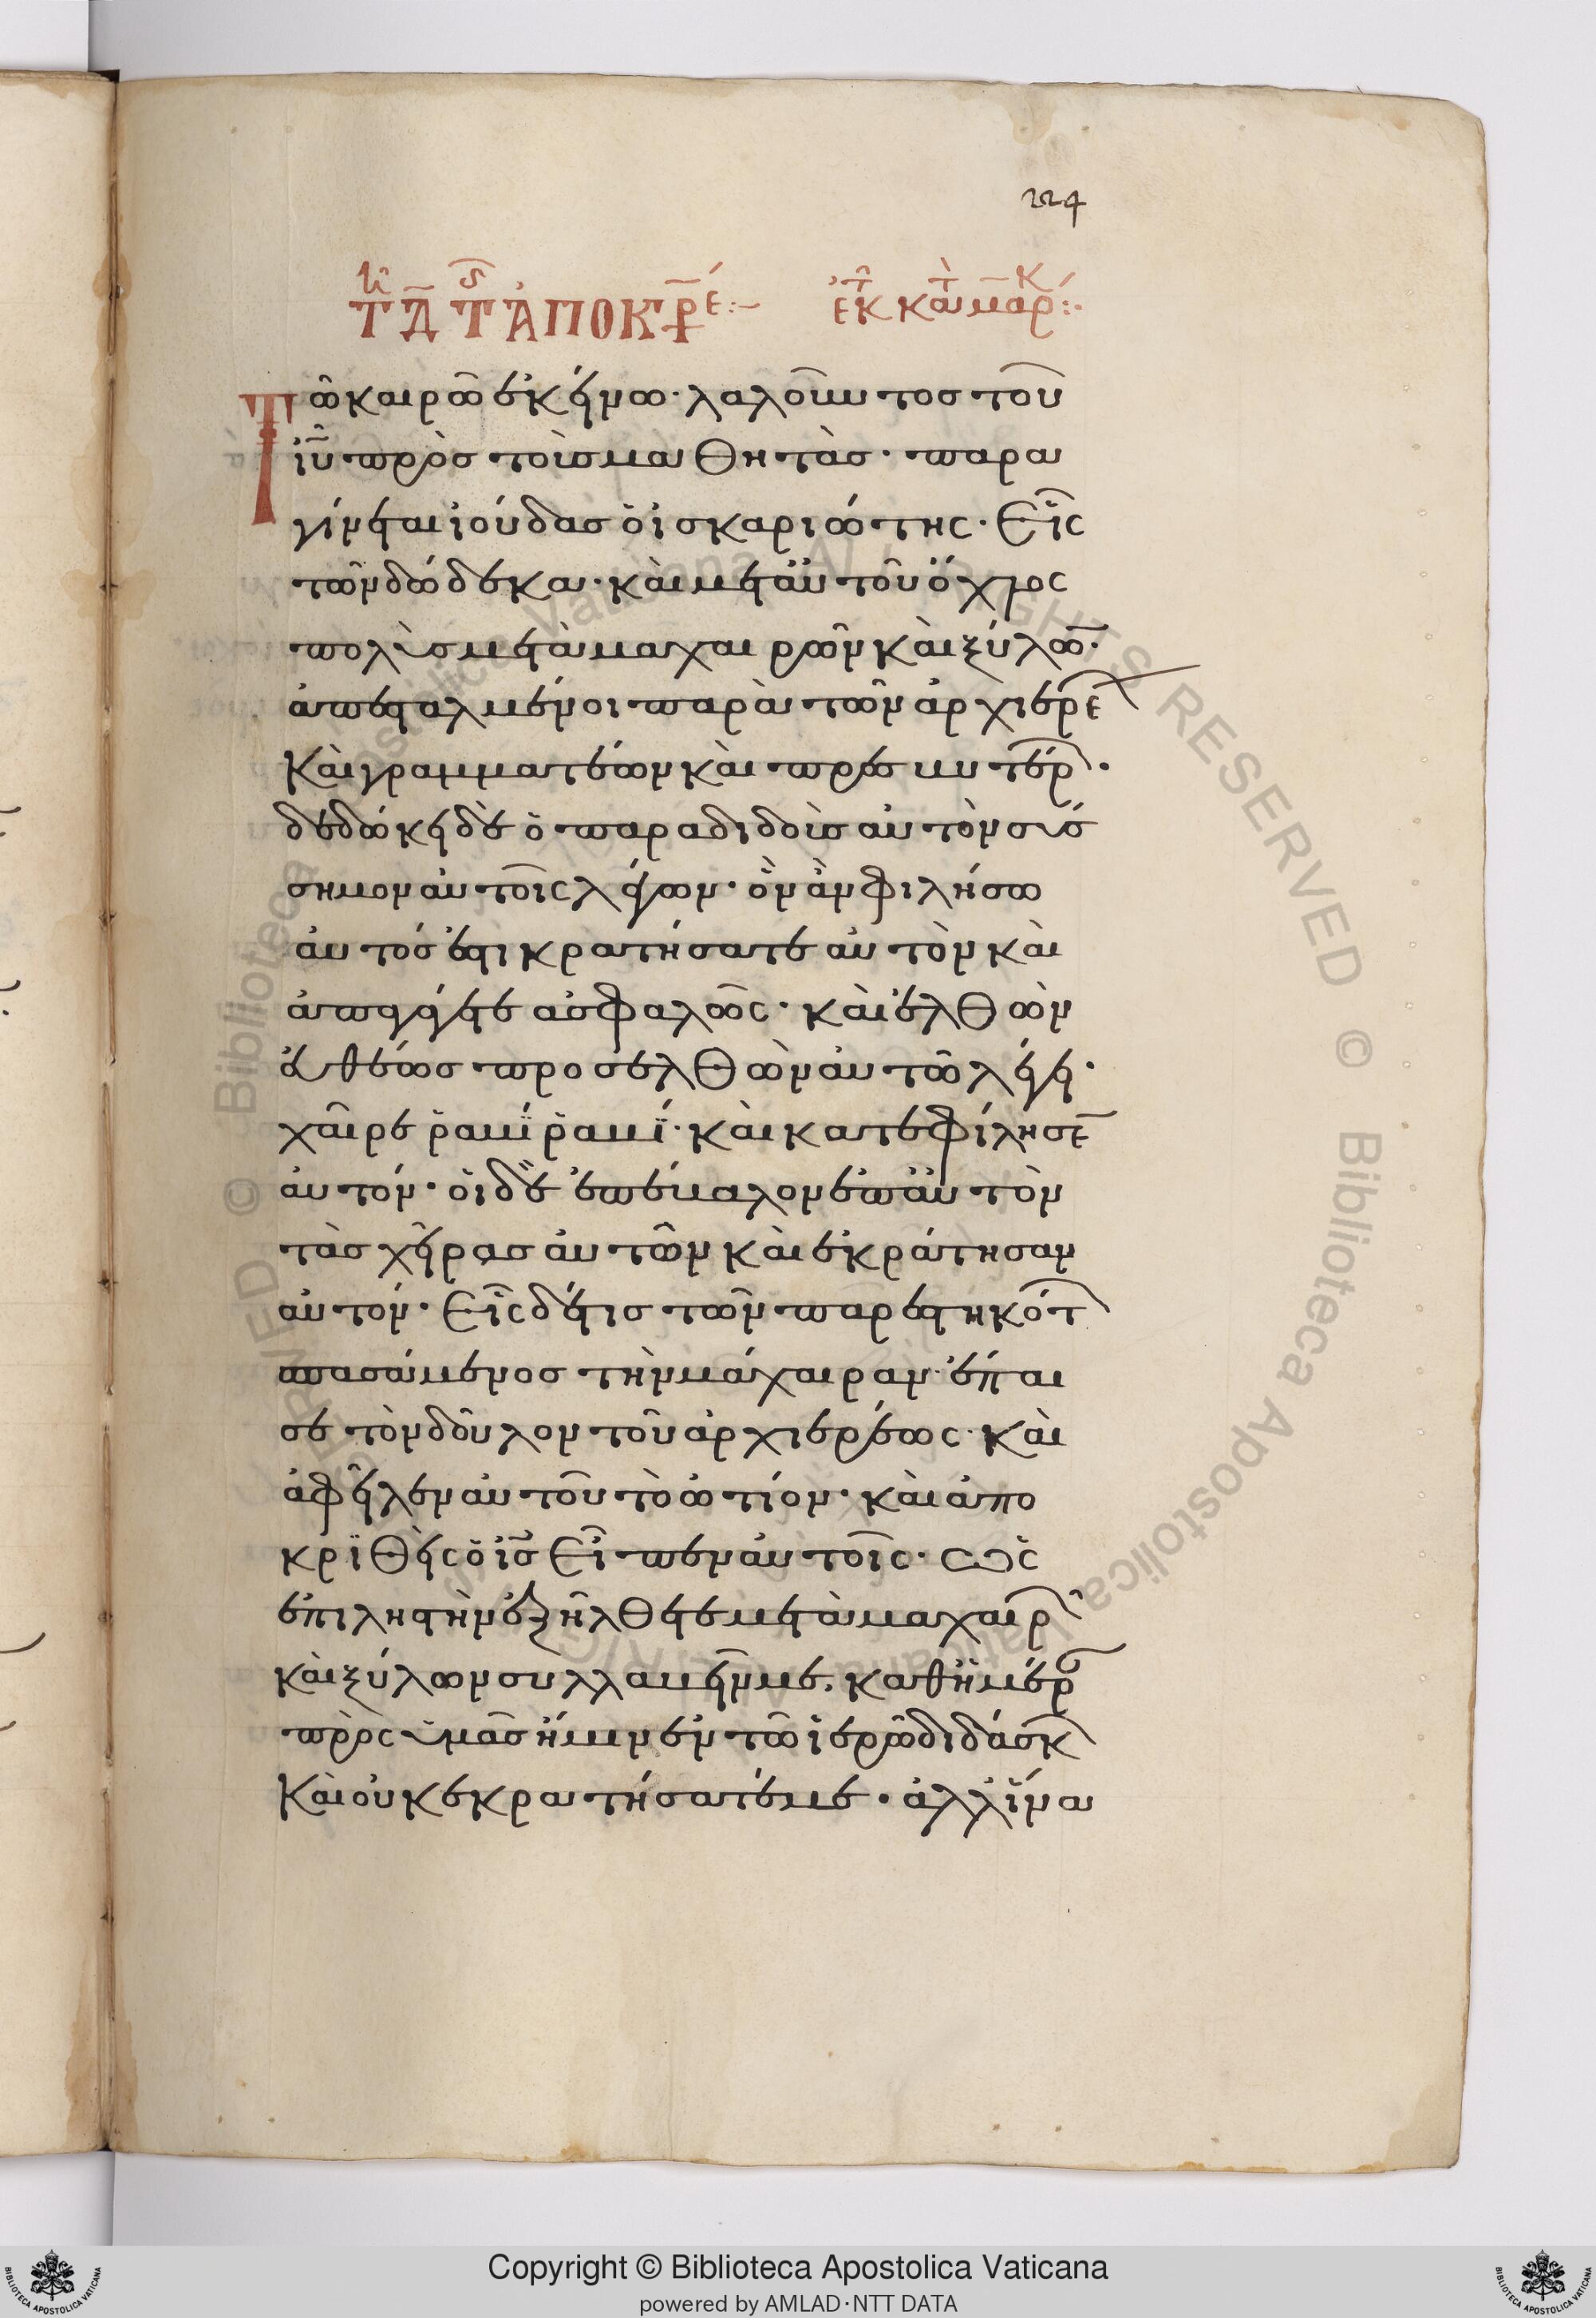 224
Τῇ δ̅ τῆς ἀποκρέ :~ ἐκ τ κατὰ μάρκ :
Τῶ καιρῶ ἐκείνω· λαλοῦντος τοῦ
ἰῦ πρὸς τοὺς μαθητάς· παρα
γίνεται ἰούδας ὁ ἰσκαριώτης· Εἷς
τῶν δώδεκα· καὶ μετ' αὐτοῦ ὄχλος
πολὺς μετὰ μαχαιρῶν καὶ ξύλω̅·
ἀπεσταλμένοι παρὰ τῶν ἀρχιερε
Καὶ γραμματέων καὶ πρεσβυτέρ·
δεδώκει δὲ ὁ παραδιδοὺς αὐτὸν σύσ
σημον αὐτοῖς λέγων· ὃν ἂν φιλήσω
αὐτός ἐστι κρατήσατε αὐτὸν καὶ
ἀπαγάγετε ἀσφαλῶς· καὶ ἐλθὼν
εὐθέως προσελθὼν αὐτῶ λέγει·
χαῖρε ῥαββΐ ῥαββΐ· καὶ κατεφίλησε̅
αὐτόν· οἱ δὲ ἐπέβαλον ἐπ' αὐτὸν
τὰς χεῖρας αὐτῶν καὶ ἐκράτησαν
αὐτόν· Εἷς δέ τις τῶν παρεστηκότ
σπασάμενος τὴν μάχαιραν· ἔπαι
σε τὸν δοῦλον τοῦ ἀρχιερέως· καὶ
ἀφεῖλεν αὐτοῦ τὸ ὠτίον· καὶ ἀπο
κριθεὶς ὁ ἰς Εἶπεν αὐτοῖς· Ὡς
ἐπι ληστὴν ἐξήλθετε μετὰ μαχαιρ
καὶ ξύλων συλλαβεῖν με. καθ' ἡμέρ
πρὸς ὑμᾶς ἤμην ἐν τῶ ἱερῶ διδάσκ
Καὶ οὐκ εκρατήσατέ με· ἀλλ' ἵνα
Copyright © Biblioteca Apostolica Vaticana
powered by AMLAD·NTT DATA